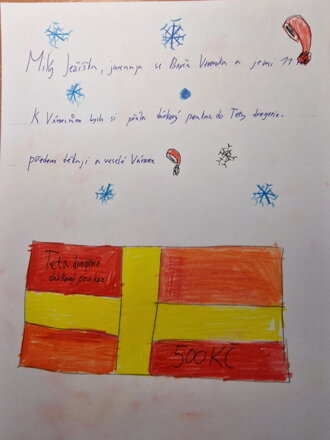 Milý Ježíšku, jmenuji se Bára a je mi 11
K Vánocům bych si přála dárkový poukaz do Tety drogerie.
předem děkuji a veselé Vánoce
Teta drogerie
dárkový poukaz
500 KČ